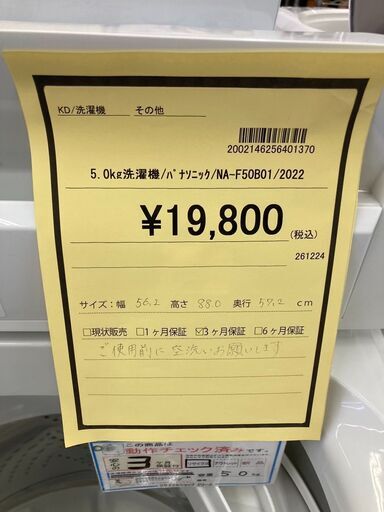 KD/洗濯機 その他
2002146256401370
5.0kg洗濯機/パナソニック/NA-F50B01/2022
¥19,800(税込)
261224
サイズ:幅 56.2 高さ 88.0 奥行 57.2 cm
□現状販売 □1ヶ月保証 ☑3ヶ月保証 □6ヶ月保証
ご使用前に空洗いお願いします
この商品は
動作チェック済みです。
安心の 3ヶ月